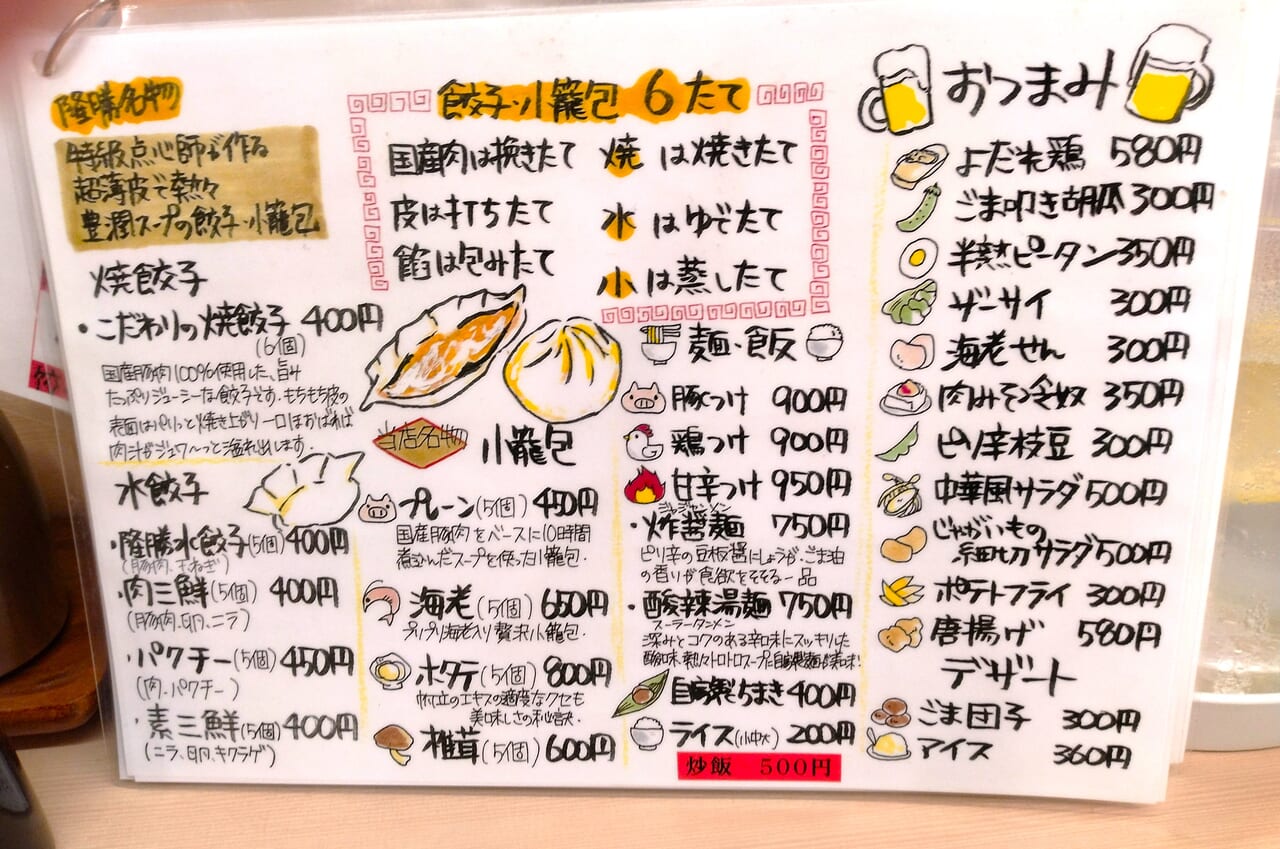 隆勝名物
特級点心師が作る
超薄皮で熱々
豊潤スープの餃子・小籠包
焼餃子
・こだわりの焼餃子 400円
(6個)
国産豚肉100%使用した、旨み
たっぷりジューシーな餃子です。もちもち皮の
表面はパリッと焼き上がり一口ほおばれば
肉汁がジュワ〜っと溢れ出します。
水餃子
・隆勝水餃子(5個)400円
(豚肉、玉ねぎ)
・肉三鮮(5個) 400円
(豚肉、卵、ニラ)
・パクチー(5個)450円
(肉、パクチー)
・素三鮮(5個)400円
(ニラ、卵、キクラゲ)
餃子・小籠包 6たて
国産肉は挽きたて
皮は打ちたて
餡は包みたて
焼は焼きたて
水はゆでたて
小は蒸したて
当店名物
小籠包
プレーン(5個) 450円
国産豚肉をベースに10時間
煮込んだスープを使った小籠包.
海老(5個) 650円
プリプリ海老入り贅沢小籠包.
ホタテ(5個) 800円
帆立のエキスの適度なクセも
美味しさの秘訣.
椎茸(5個) 600円
麺・飯
豚つけ 900円
鶏つけ 900円
甘辛つけ 950円
ジャジャンメン
・炸醤麺 750円
ピリ辛の豆板醤にしょうが、ごま油
の香りが食欲をそそる一品
・酸辣湯麺 750円
スーラータンメン
深みとコクのある辛味にスッキリした
酸味、熱々トロトロスープに自家製麺も美味!
自家製ちまき 400円
ライス(小中大) 200円
炒飯 500円
おつまみ
よだれ鶏 580円
ごま叩き胡瓜 300円
半熟ピータン 350円
ザーサイ 300円
海老せん 300円
肉みそ冷奴 350円
ピリ辛枝豆 300円
中華風サラダ 500円
じゃがいもの
細切サラダ 500円
ポテトフライ 300円
唐揚げ 580円
デザート
ごま団子 300円
アイス 360円